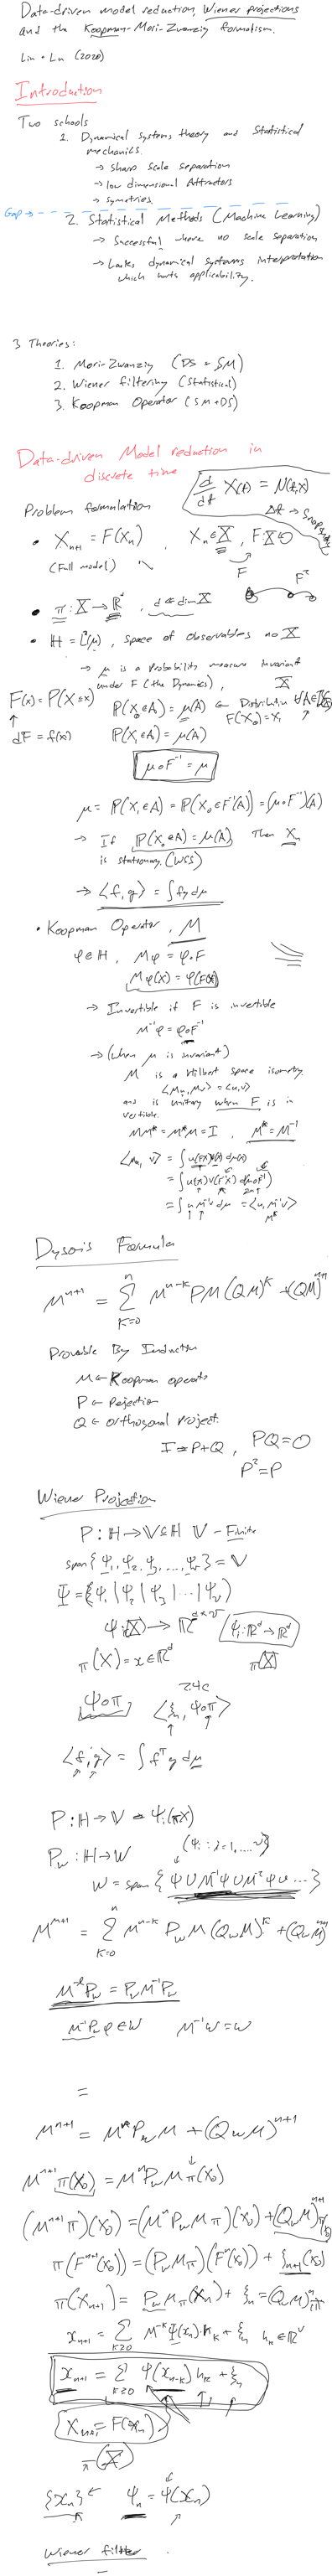 Data-driven model reduction, Wiener projections
and the Koopman-Mori-Zwanzig formalism.
Lin + Lu (2020)
Introduction
Two schools
1. Dynamical systems theory and Statistical
mechanics.
→ sharp scale separation
→ low dimensional Attractors
→ symmetries
Gap →
2. Statistical Methods (Machine Learning)
→ Successful where no scale separation
→ Lacks dynamical systems interpretation
which hurts applicability.
3 Theories:
1. Mori-Zwanzig (DS + SM)
2. Wiener filtering (Statistical)
3. Koopman Operator (SM + DS)
Data-driven Model reduction in
discrete time
d/dt X(t) = N(t,X)
Δt →
Problem formulation
• X_{n+1} = F(X_n), X_n ∈ X, F: X
(Full model)
F
F²
• π: X → R^d, d ≪ dim X
• H = L²(μ), space of observables on X
→ μ is a Probability measure invariant
under F (the Dynamics),
F(x) = P(X ≤ x)
P(X_0∈A) = μ(A) ← Distribution
F(X_0) = X_1
dF = f(x)
P(X_1∈A) = μ(A)
μ∘F⁻¹ = μ
μ = P(X_1∈A) = P(X_0∈F⁻¹(A)) = (μ∘F⁻¹)(A)
→ If P(X_0∈A) = μ(A), Then X_n
is stationary. (WSS)
→ ⟨f, g⟩ = ∫ f g dμ
• Koopman Operator, M
φ∈H, Mφ = φ∘F
Mφ(X) = φ(F(X))
→ Invertible if F is invertible
M⁻¹φ = φ∘F⁻¹
→ (when μ is invariant)
M is a Hilbert space isometry
⟨Mu, Mv⟩ = ⟨u,v⟩
and is unitary when F is in
vertible.
MM* = M*M = I, M* = M⁻¹
⟨Mu, v⟩ = ∫ u(F(X)) v(X) dμ(X)
= ∫ u(x) v(F⁻¹X) d(μ∘F⁻¹)
= ∫ u M⁻¹v dμ = ⟨u, M⁻¹v⟩
M*
Dyson's Formula
M^{n+1} = Σ_{k=0}^{n} M^{n-k} PM (QM)^k + (QM)^{n+1}
Provable By Induction
M ← Koopman operator
P ← Projection
Q ← orthogonal project.
I = P+Q, PQ = 0
P² = P
Wiener Projection
P: H → V ⊆ H V - Finite
span{ψ_1, ψ_2, ψ_3, ..., ψ_ν} = V
Ψ = (ψ_1 | ψ_2 | ψ_3 | ... | ψ_ν)
ψ: → R^{d×ν} (ψ_i: R^d → R^d)
π(X) = x ∈ R^d
π(X)
ψ∘π
⟨ξ_n, ψ∘π⟩
⟨f, g⟩ = ∫ f^T g dμ
P: H → V ← ψ_i(πX)
P_W: H → W (ψ_i : i=1,...,ν)
W = span{ψ ∪ M⁻¹ψ ∪ M⁻²ψ ∪ ...}
M^{n+1} = Σ_{k=0}^{n} M^{n-k} P_W M (Q_W M)^k + (Q_W M)^{n+1}
M^{-l} P_W = P_W M^{-l} P_W
M⁻¹P_W φ ∈ W M⁻¹W = W
=
M^{n+1} = M^n P_W M + (Q_W M)^{n+1}
M^{n+1} π(X_0) = M^n P_W M π(X_0)
(M^{n+1} π)(X_0) = (M^n P_W M π)(X_0) + (Q_W M)^{n+1} π(X_0)
π(F^{n+1}(X_0)) = (P_W M π)(F^n(X_0)) + ξ_{n+1}(X_0)
π(X_{n+1}) = P_W M π(X_n) + ξ_n = (Q_W M)^n π
x_{n+1} = Σ_{k≥0} M^{-k} Ψ(x_n)·h_k + ξ_n h_k ∈ R^ν
x_{n+1} = Σ_{k≥0} ψ(x_{n-k}) h_k + ξ_n
X_{n+1} = F(X_n)
π(X)
{x_n} ← ψ_n = ψ(x_n)
Wiener filter